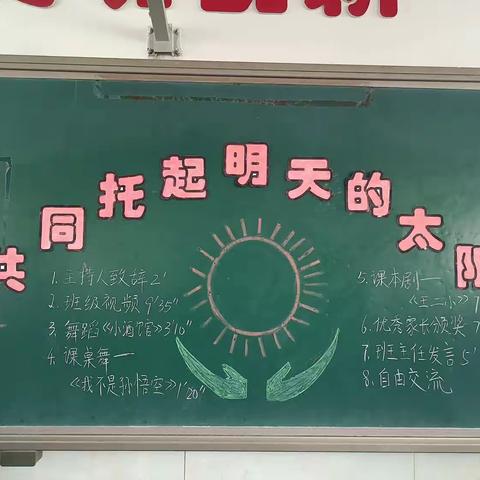 共同托起明天的太阳
1.主持人致辞2'
2.班级视频9'35"
3.舞蹈《小酒馆》3'10"
4.课桌舞—
《我不是孙悟空》1'20"
5.课本剧—
《王二小》7
6.优秀家长颁奖7
7.班主任发言5'
8.自由交流